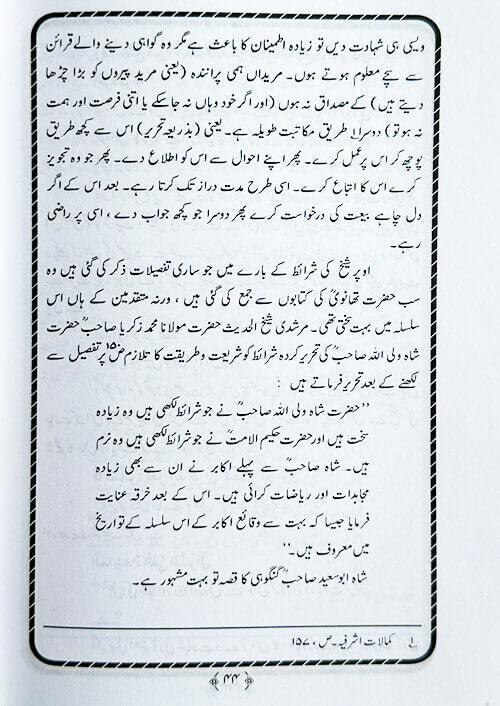 ویسی ہی شہادت دیں تو زیادہ اطمینان کا باعث ہے مگر وہ گواہی دینے والے قرائن
سے سچے معلوم ہوتے ہوں۔ مریداں ہمی پرانندہ (یعنی مرید پیروں کو بڑا چڑھا
دیتے ہیں) کے مصداق نہ ہوں (اور اگر خود وہاں نہ جاسکے یا اتنی فرصت اور ہمت
نہ ہو تو) دوسرا ؎۱ طریق مکاتبت طویلہ ہے۔ یعنی (بذریعہ تحریر) اس سے کچھ طریق
پوچھ کر اس پر عمل کرے۔ پھر اپنے احوال سے اس کو اطلاع دے۔ پھر جو وہ تجویز
کرے اس کا اتباع کرے۔ اسی طرح مدت دراز تک کرتا رہے۔ بعد اس کے اگر
دل چاہے بیعت کی درخواست کرے پھر دوسرا جو کچھ جواب دے، اسی پر راضی
رہے۔
اوپر شیخ کی شرائط کے بارے میں جو ساری تفصیلات ذکر کی گئی ہیں وہ
سب حضرت تھانویؒ کی کتابوں سے جمع کی گئی ہیں، ورنہ متقدمین کے ہاں اس
سلسلہ میں بہت سختی تھی۔ مرشدی شیخ الحدیث حضرت مولانا محمد زکریا صاحبؒ حضرت
شاہ ولی اللہ صاحبؒ کی تحریر کردہ شرائط کو شریعت و طریقت کا تلازم ص۱۵۰ پر تفصیل سے
لکھنے کے بعد تحریر فرماتے ہیں :
’’حضرت شاہ ولی اللہ صاحبؒ نے جو شرائط لکھی ہیں وہ زیادہ
سخت ہیں اور حضرت حکیم الامتؒ نے جو شرائط لکھی ہیں وہ نرم
ہیں۔ شاہ صاحبؒ سے پہلے اکابر نے ان سے بھی زیادہ
مجاہدات اور ریاضات کرائی ہیں۔ اس کے بعد خرقہ عنایت
فرمایا جیسا کہ بہت سے وقائع اکابر کے اس سلسلہ کے تواریخ
میں معروف ہیں۔‘‘
شاہ ابوسعید صاحبؒ گنگوہی کا قصہ تو بہت مشہور ہے۔
؎۱ کمالات اشرفیہ۔ص، ۱۵۷
﴿۴۴﴾